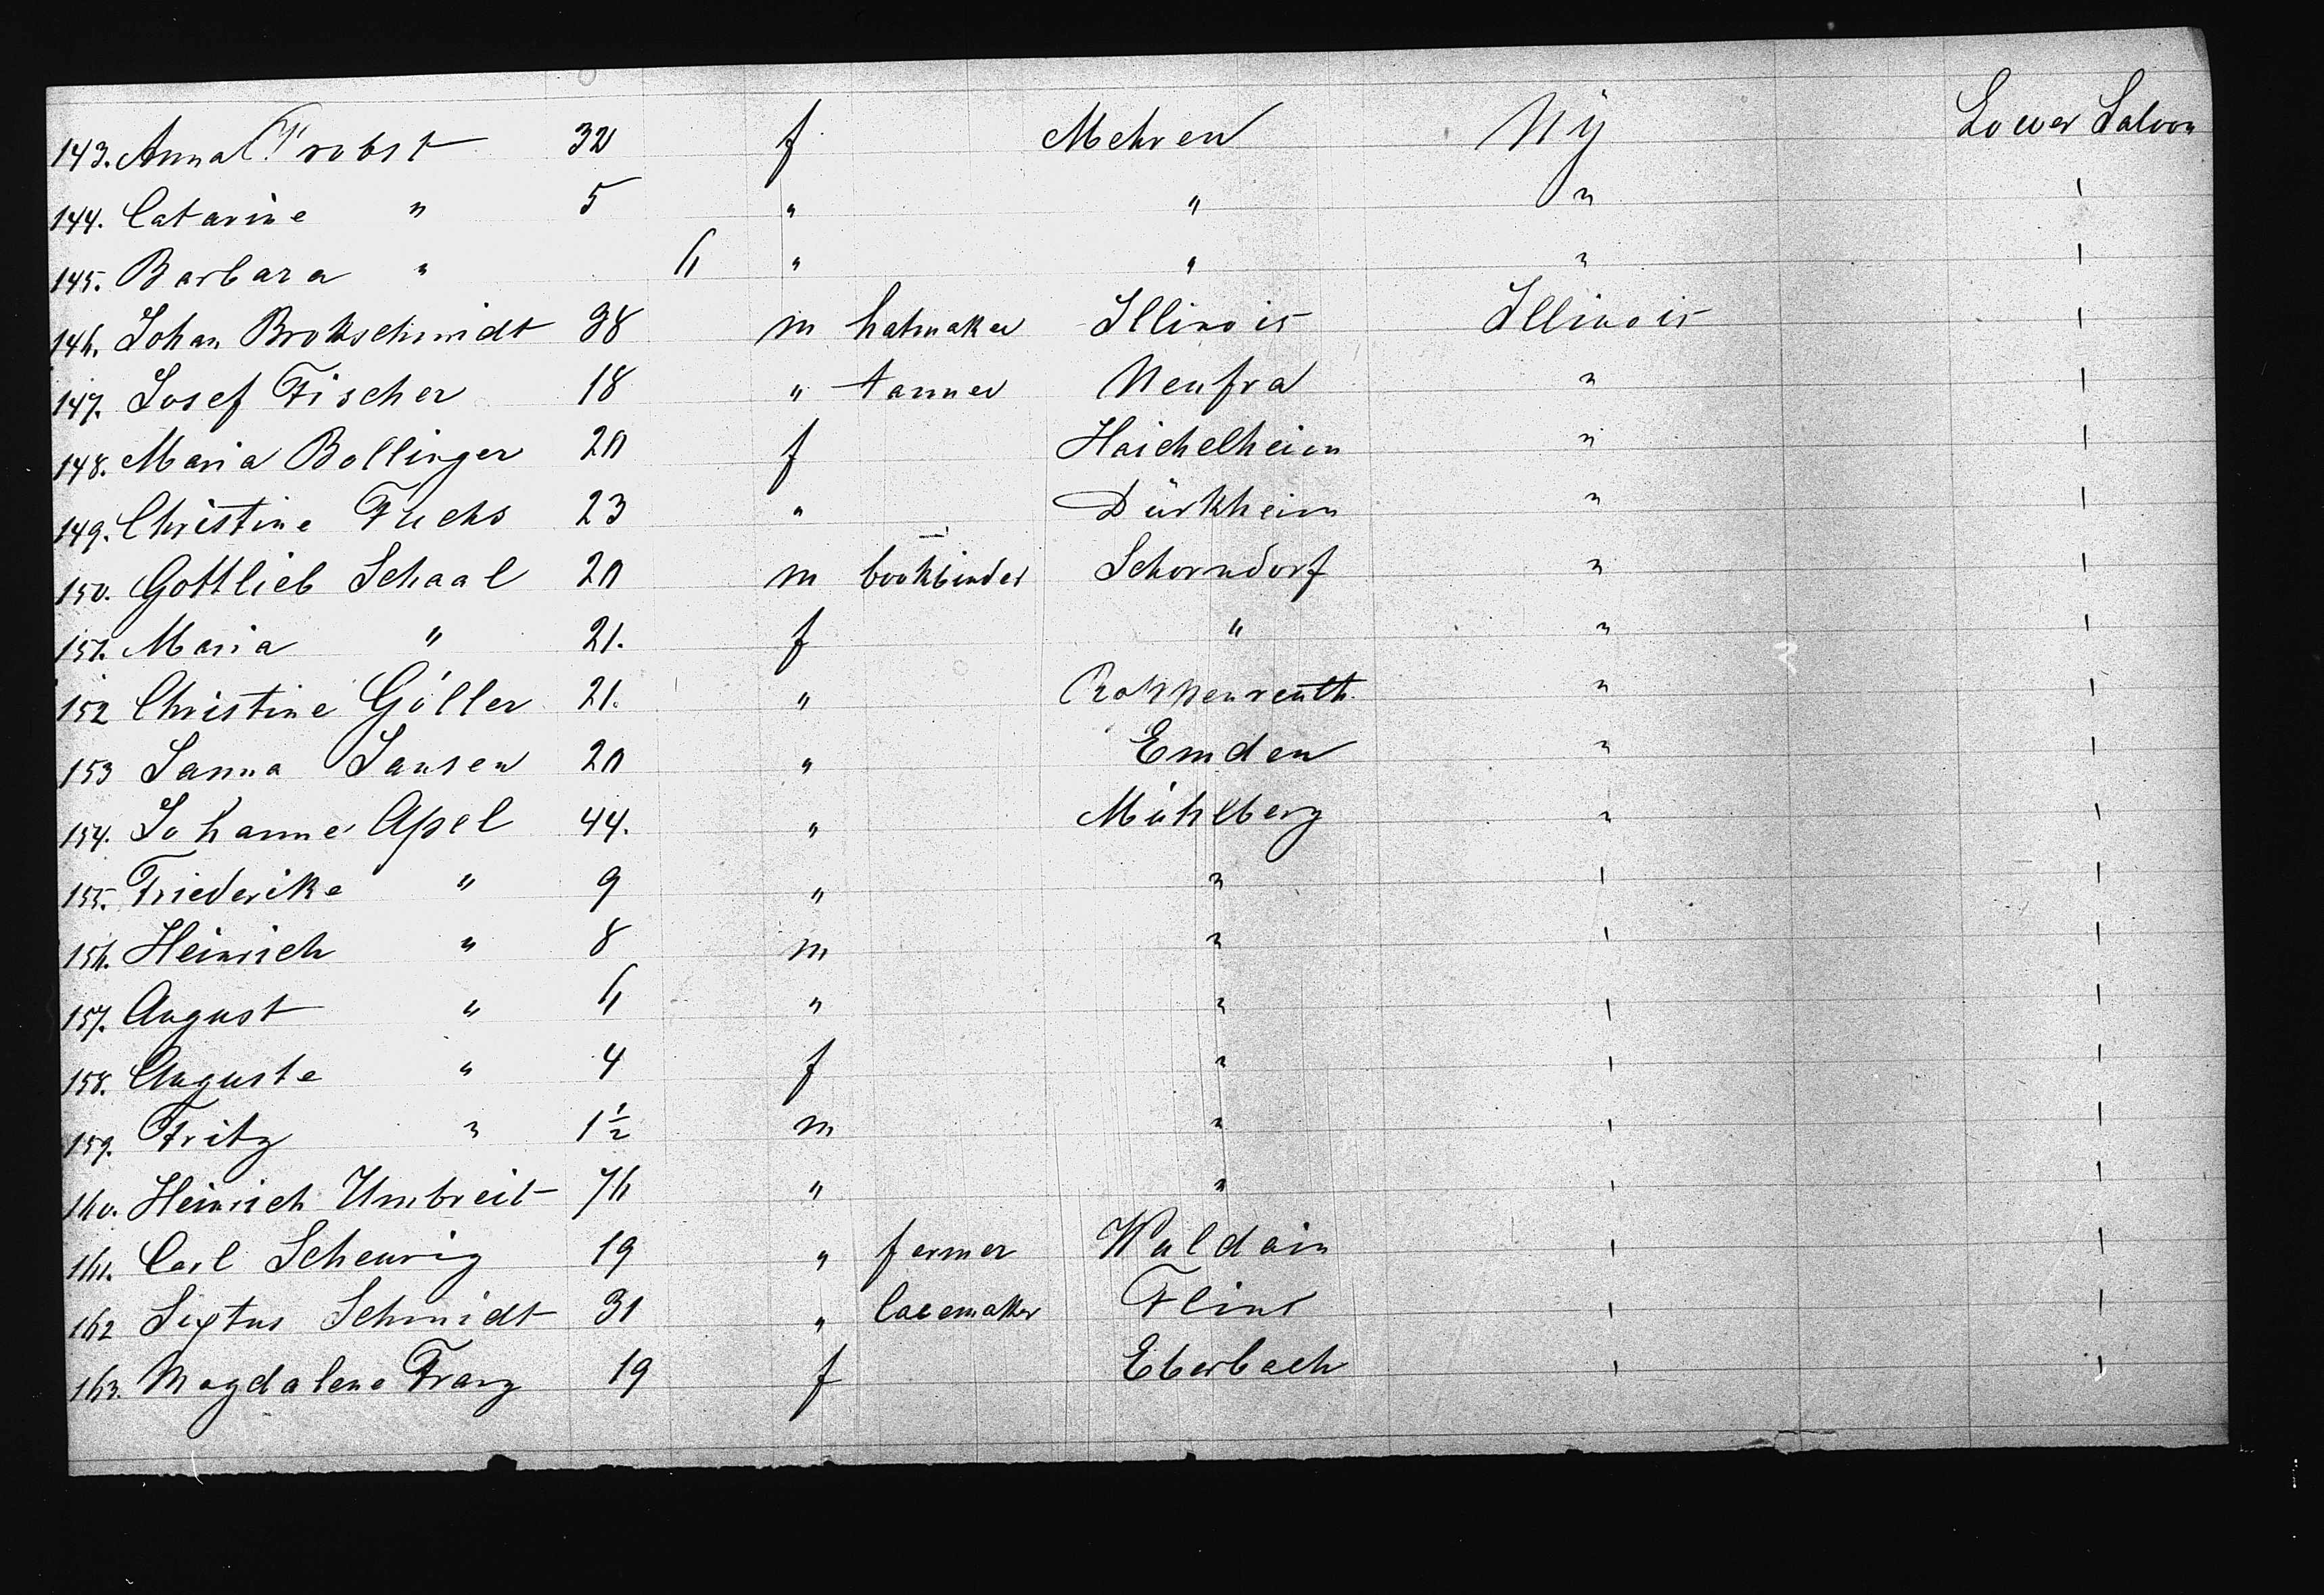 143. Anna Probst 32 f Mehren NY Lower Saloon
144. Catarine " 5 " " " "
145. Barbara " 6 " " " "
146. Johan Brokschmidt 38 m hatmaker Illinois Illinois "
147. Josef Fischer 18 " tanner Neufra " "
148. Maria Bollinger 20 f Haichelheim " "
149. Christine Fuchs 23 " Dürkheim " "
150. Gottlieb Schaal 20 m bookbinder Schorndorf " "
151. Maria " 21. f " " "
152 Christine Göller 21. " " "
153 Janna Jansen 20 " Emden " "
154. Johanne Apel 44. " Mühlberg " "
155. Friederike " 9 " " " "
156. Heinrich " 8 m " " "
157. August " 6 " " " "
158. Auguste " 4 f " " "
159. Fritz " 1½ m " " "
160. Heinrich Umbreit 76 " " " "
161. Carl Scheurig 19 " farmer " "
162 Sixtus Schmidt 31 " lacemaker " "
163. Magdalena Franz 19 f Eberbach " "